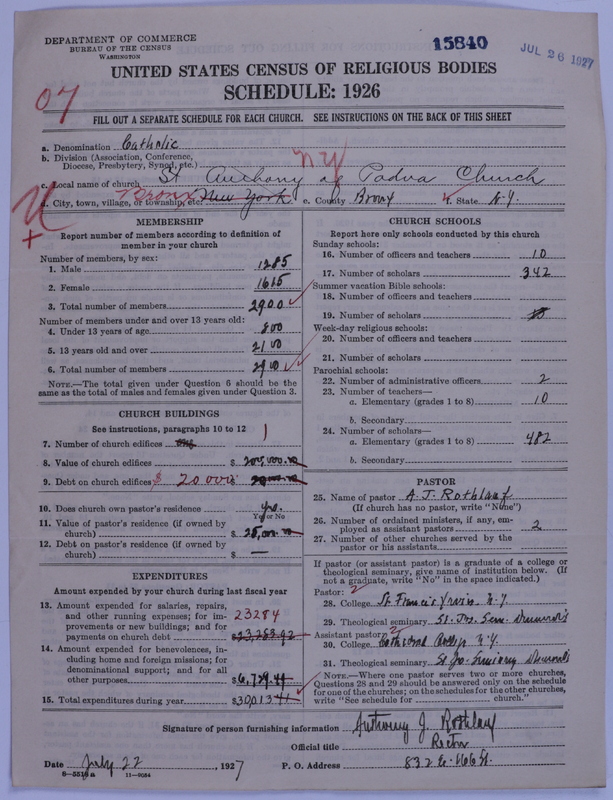 DEPARTMENT OF COMMERCE
BUREAU OF THE CENSUS
WASHINGTON
15840
JUL 26 1927
UNITED STATES CENSUS OF RELIGIOUS BODIES
SCHEDULE: 1926
07
FILL OUT A SEPARATE SCHEDULE FOR EACH CHURCH. SEE INSTRUCTIONS ON THE BACK OF THIS SHEET
a. Denomination Catholic
b. Division (Association, Conference,
Diocese, Presbytery, Synod, etc.) NY
c. Local name of church St Anthony of Padua Church
d. City, town, village, or township, etc. Bronx New York e. County Bronx f. State N.Y.
MEMBERSHIP
Report number of members according to definition of
member in your church
Number of members, by sex:
1. Male 1285
2. Female 1615
3. Total number of members 2900
Number of members under and over 13 years old:
4. Under 13 years of age 800
5. 13 years old and over 2100
6. Total number of members 2900
NOTE.—The total given under Question 6 should be the
same as the total of males and females given under Question 3.
CHURCH BUILDINGS
See instructions, paragraphs 10 to 12
7. Number of church edifices 1
8. Value of church edifices $ 200,000.00
9. Debt on church edifices $ 20000
10. Does church own pastor's residence yes.
Yes or No
11. Value of pastor's residence (if owned by
church) $ 25,000.00
12. Debt on pastor's residence (if owned by
church) $ —
EXPENDITURES
Amount expended by your church during last fiscal year
13. Amount expended for salaries, repairs,
and other running expenses; for im-
provements or new buildings; and for
payments on church debt 23284 $23,283.92
14. Amount expended for benevolences, in-
cluding home and foreign missions; for
denominational support; and for all
other purposes $6,729.49
15. Total expenditures during year $30,013.41
CHURCH SCHOOLS
Report here only schools conducted by this church
Sunday schools:
16. Number of officers and teachers 10
17. Number of scholars 342
Summer vacation Bible schools:
18. Number of officers and teachers
19. Number of scholars
Week-day religious schools:
20. Number of officers and teachers
21. Number of scholars
Parochial schools:
22. Number of administrative officers 2
23. Number of teachers—
a. Elementary (grades 1 to 8) 10
b. Secondary
24. Number of scholars—
a. Elementary (grades 1 to 8) 482
b. Secondary
PASTOR
25. Name of pastor A. J. Rothlauf
(If church has no pastor, write "None")
26. Number of ordained ministers, if any, em-
ployed as assistant pastors 2
27. Number of other churches served by the
pastor or his assistants
If pastor (or assistant pastor) is a graduate of a college or
theological seminary, give name of institution below. (If
not a graduate, write "No" in the space indicated.)
Pastor: 2
28. College St Francis Xavier N.Y.
29. Theological seminary St. Jos. Sem. Dunwoodie
Assistant pastor: 2
30. College Cathedral College N.Y.
31. Theological seminary St Jos. Seminary Dunwoodie
NOTE.—Where one pastor serves two or more churches,
Questions 28 and 29 should be answered only on the schedule
for one of the churches; on the schedules for the other churches,
write "See schedule for church."
Signature of person furnishing information Anthony J. Rothlauf
Official title Rector
Date July 22, 1927 P. O. Address 832 E. 166 St.
8—5513a 11—9054